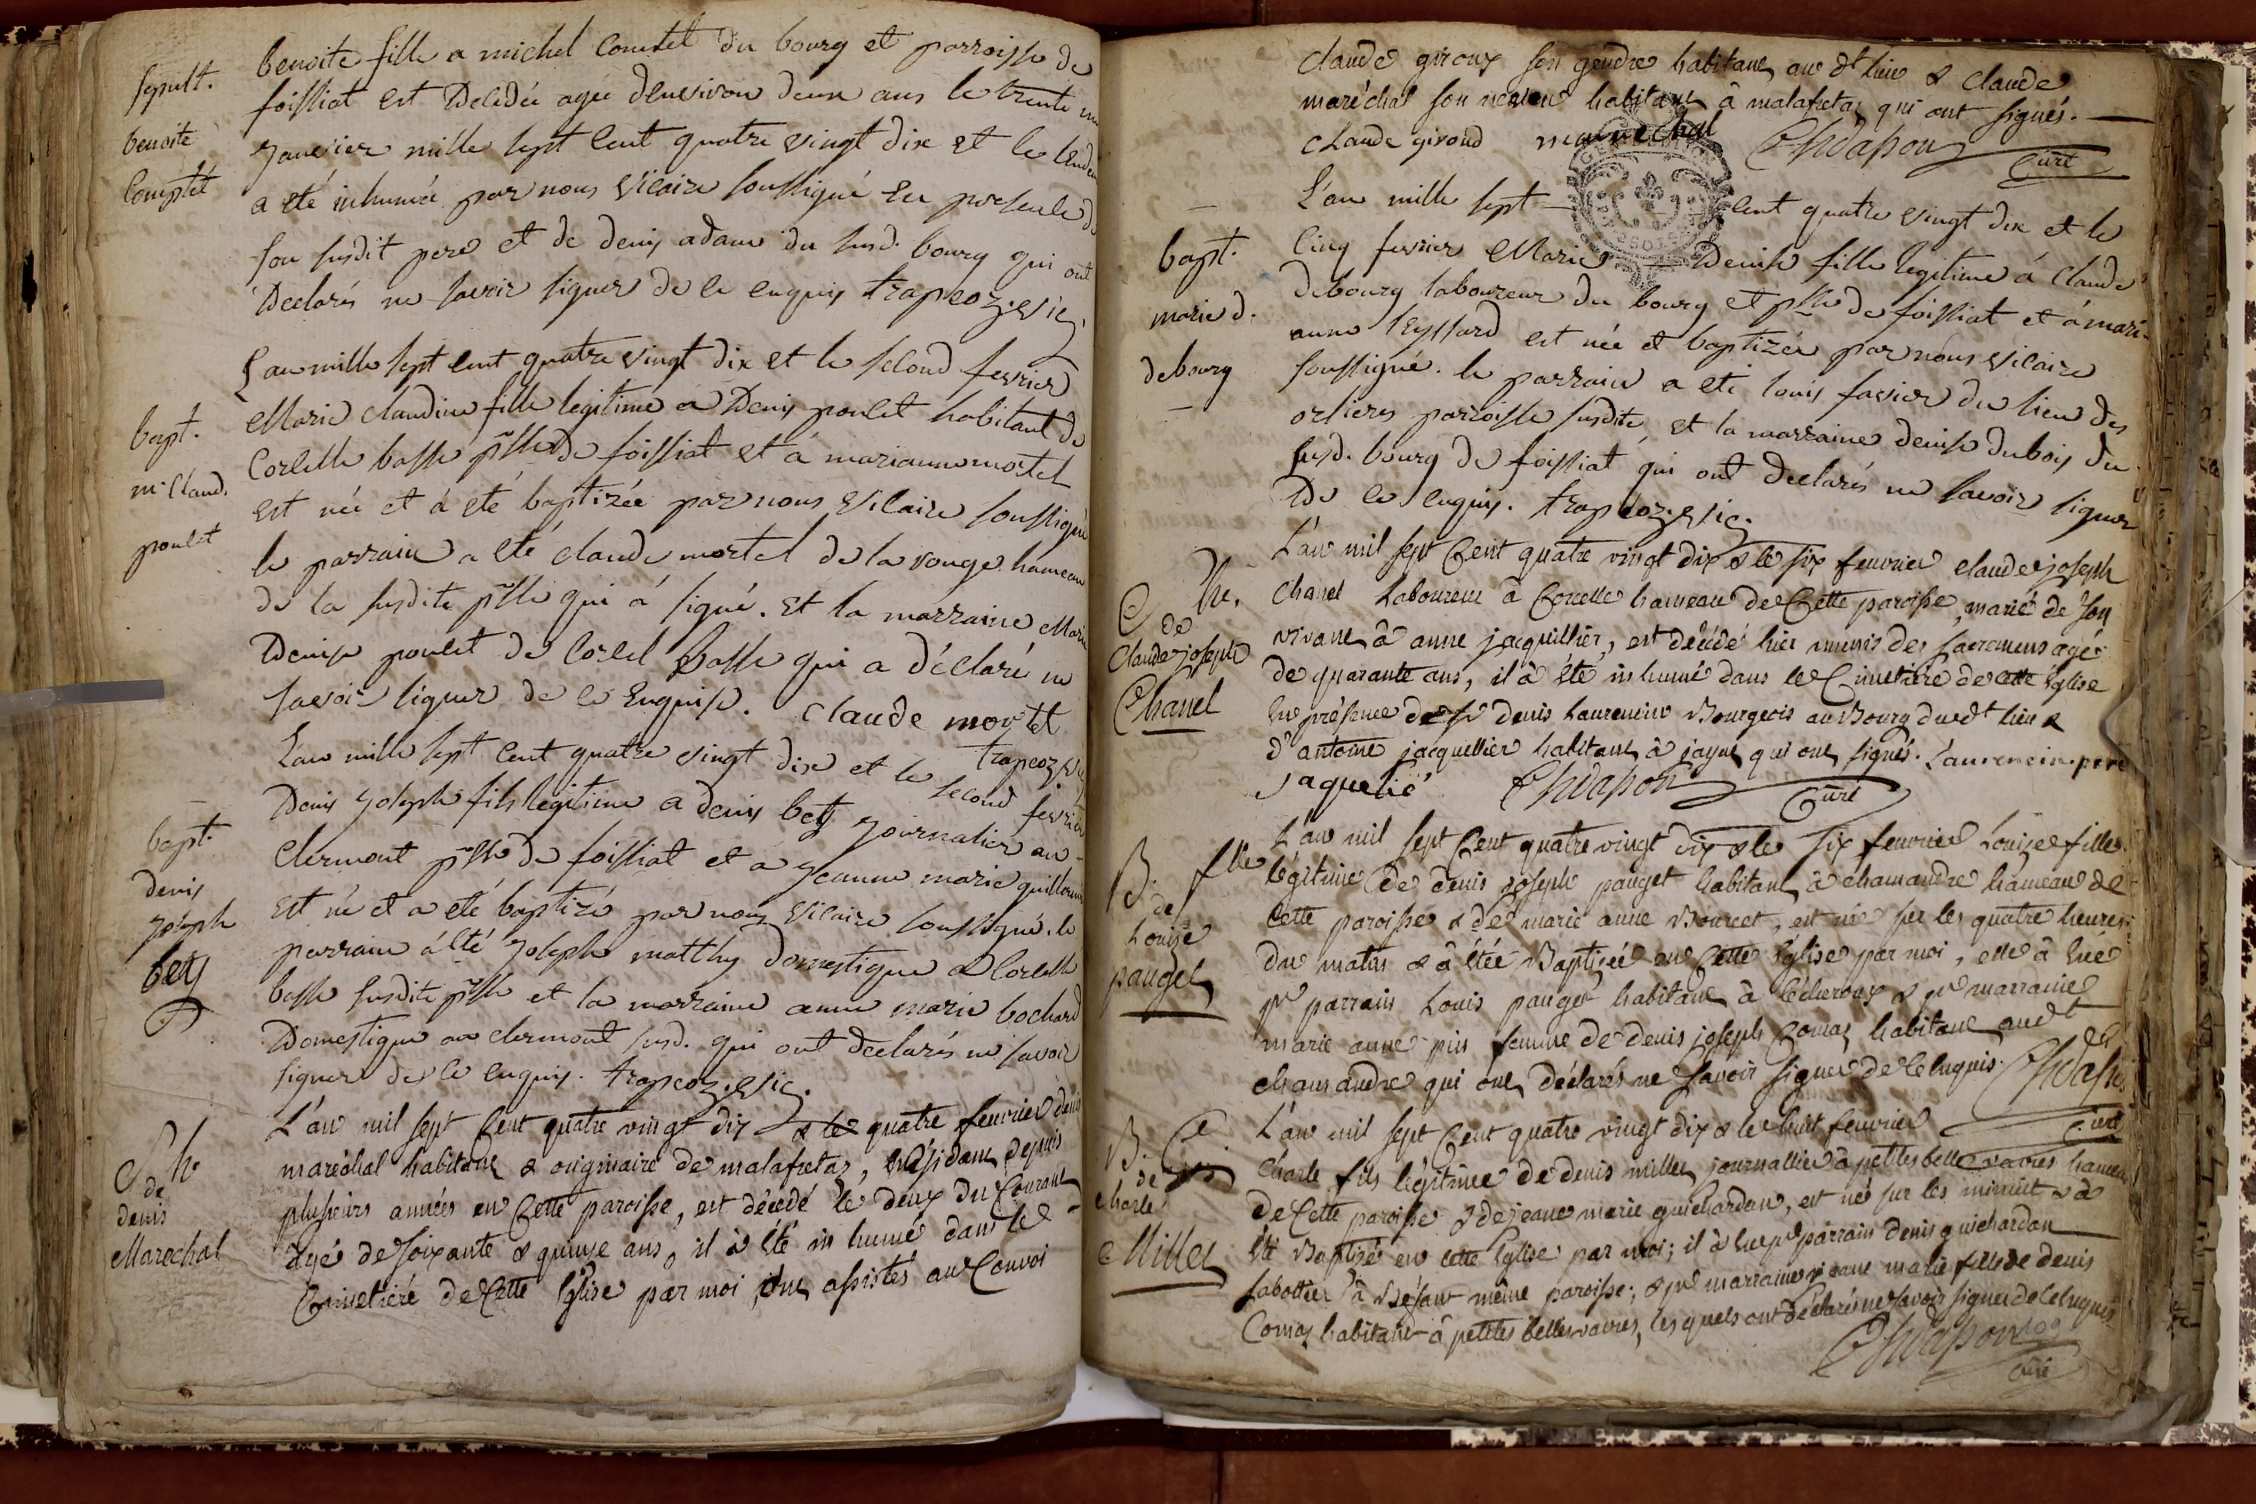 sepult.
benoite
Comptet
benoite fille a michel Comtet du bourg et parroisse de
foissiat est Decedée agée denviron deux ans le trente un
janvier mille sept cent quatre vingt dix et le lendem
a eté inhumée par nous vicaire soussigné en presence de
son susdit pere et de denis adam du susd. bourg qui ont
Declarés ne savoir signer de ce enquis trapcoz. vic.
bapt.
m. claud.
poulet
L'an mille sept cent quatre vingt dix et le second fevrier
Marie claudine fille legitime a Denis poulet habitant de
Corcelle basse psse de foissiat et á marianne mortel
est née et á eté baptizée par nous vicaire soussigné
le parrain a eté claude mortel de la rouge hameau
de la susdite psse qui á signé. et la marraine Marie
Denise poulet de Corcel basse qui a déclaré ne
savoir signer de ce Enquise. claude mortel
trapcoz vic
bapt.
denis
joseph
bely
L'an mille sept cent quatre vingt dix et le second fevrier
Denis joseph fils legitime a denis bely journalier au
Clermont psse de foissiat et a jeanne marie guillerm
est né et a eté baptizé par nous vicaire soussigné. le
parrain á eté joseph matthy domestique a Corcelle
basse susdite psse et la marraine anne marie bochard
Domestique au clermont susd. qui ont declarés ne savoir
signer de ce enquis. trapcoz. vic.
Sh
de
denis
Marechal
L'an mil sept Cent quatre vingt dix & le quatre fevrier denis
maréchal habitant & originaire de malafretaz, résidant depuis
plusieurs années en Cette paroisse, est décedé le deux du Courant
agé de soixante & quinze ans, il à été inhumé dans le
Cimetiére de Cette église par moi, ont assistés au Convoi
claude giroux son gendre habitant au dt lieu & claude
maréchal son neveu habitant à malafretaz qui ont signés.
claude giroud marechal Chvapon
Curé
bapt.
marie d.
debourg
L'an mille sept cent quatre vingt dix et le
Cinq fevrier Marie Denise fille legitime á claude
debourg laboureur du bourg et psse de foissiat et á marie
anne teyssard est née et baptizée par nous vicaire
soussigné. le parrain a eté louis favier du lieu des
orcieres parroisse susdite, et la marraine denise dubois du
susd. bourg de foissiat qui ont declarés ne savoir signer
De ce enquis. trapcoz. vic.
Sh.
de
Claude joseph
Chanel
L'an mil sept Cent quatre vingt dix & le six fevrier claude joseph
Chanel Laboureur à Corcelle hameau de Cette paroisse, marié de son
vivant à anne jacquillier, est décédé hier munis des sacremens agé
de quarante ans, il à été inhumé dans le Cimetière de cette Eglise
en présence de sr denis Laurencin Bourgeois au Bourg dudt lieu &
d'antoine jacquellier habitant à jayat qui ont signés. Laurencin pere
Jaquelié Chvapon
Curé
B. flle
de
Louise
pauget
L'an mil sept Cent quatre vingt dix & le six fevrier Louise fille
légitime de denis joseph pauget habitant à chamandre hameau de
Cette paroisse & de marie anne Bourcet, est née sur les quatre heures
du matin & à étée Baptisée en Cette Eglise par moi, elle à eue
pr parrain Louis pauget habitant à lécheroux & pr marraine
marie anne pin femme de denis joseph Comas habitant audt
chamandre qui ont déclarés ne savoir signer de ce enquis. Chvapon
Curé
B.
de
charle
Millet
L'an mil sept Cent quatre vingt dix & le huit fevrier
Charle fils légitime de denis millet journallier à petites belles vavres hameau
de Cette paroisse & de jeane marie guichardan, est né sur les minuit & à
été Baptisé en cette Eglise par moi; il à eu pr parrain denis guichardan
sabottier à Bésan même paroisse; & pr marraine jeane marie fille de denis
Comas habitant à petites belles vavres, lesquels ont déclarés ne savoir signer de ce enquis
Chvapon
curé